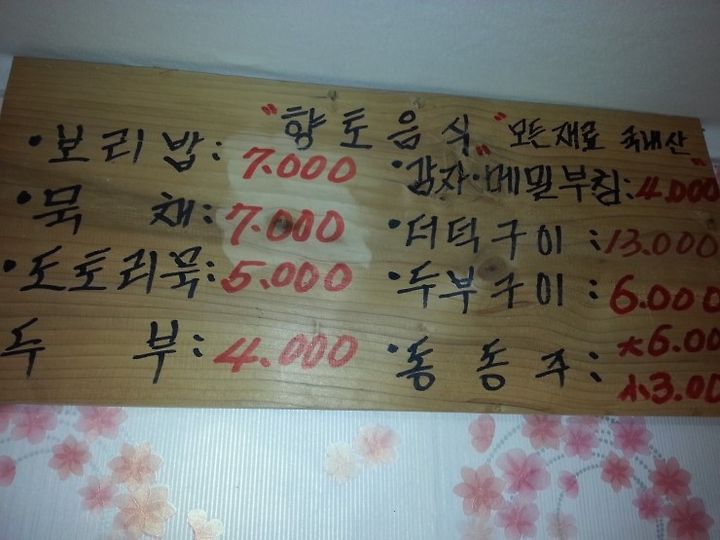 "향토음식" 모든재료 국내산
·보리밥: 7.000
·묵 채: 7.000
·도토리묵: 5.000
두 부: 4.000
·감자·"메밀부침": 4.000
·더덕구이: 13.000
·두부구이: 6.000
·동 동 주: 大6.00
小3.00